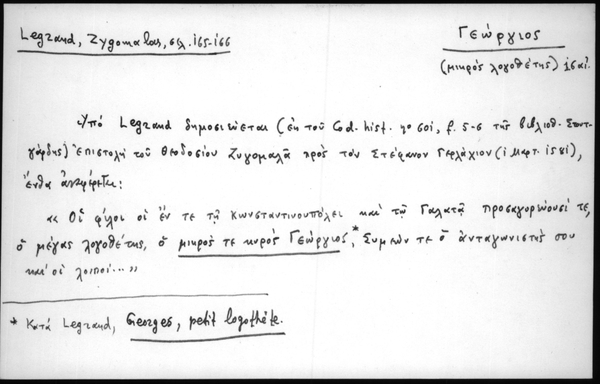 Legrand, Zygomalas, σελ. 165-166
Γεώργιος
(μικρὸς λογοθέτης) 16 αἰ.
Ὑπὸ Legrand δημοσιεύεται (ἐκ τοῦ Cod. hist. f. 5-6 τῆς βιβλιοθ. Στουτ-
γάρδης) ἐπιστολὴ τοῦ Θεοδοσίου Ζυγομαλᾶ πρὸς τὸν Στέφανον Γερλάχιον (1 Μαρτ. 1581),
ἔνθα ἀναφέρεται:
« Οἱ φίλοι οἱ ἔν τε τῇ Κωνσταντινουπόλει καὶ τῷ Γαλατᾷ προσαγορεύουσί τε,
ὁ μέγας λογοθέτης, ὁ μικρός τε κυρὸς Γεώργιος,* Συμεών τε ὁ ἀνταγωνιστής σου
καὶ οἱ λοιποί... »
* Κατὰ Legrand, Georges, petit logothète.